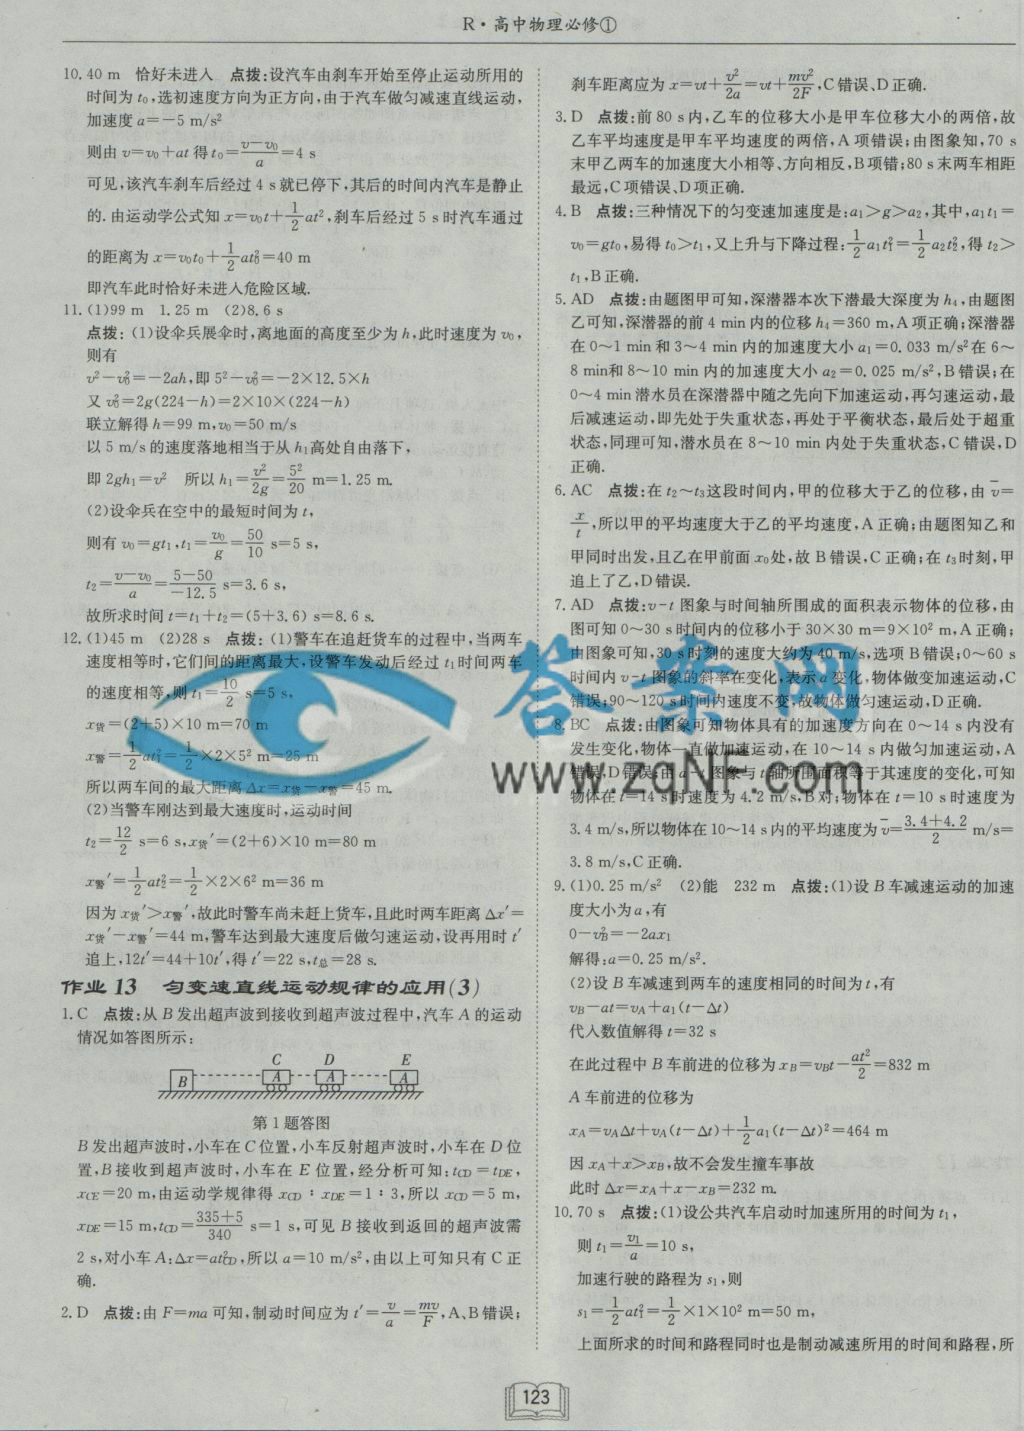 R·高中物理必修①
10. 40 m 恰好未进入 点拨:设汽车由刹车开始至停止运动所用的
时间为 t₀,选初速度方向为正方向,由于汽车做匀减速直线运动,
加速度 a=-5 m/s²
则由 v=v₀+at 得 t₀=(v-v₀)/a=4 s
可见,该汽车刹车后经过 4 s 就已停下,其后的时间内汽车是静止
的.由运动学公式知 x=v₀t+1/2 at²,刹车后经过 5 s 时汽车通过
的距离为 x=v₀t₀+1/2 at₀²=40 m
即汽车此时恰好未进入危险区域.
11. (1)99 m 1.25 m (2)8.6 s
点拨:(1)设伞兵展伞时,离地面的高度至少为 h,此时速度为 v₀,
则有
v²-v₀²=-2ah,即 5²-v₀²=-2×12.5×h
又 v₀²=2g(224-h)=2×10×(224-h)
联立解得 h=99 m,v₀=50 m/s
以 5 m/s 的速度落地相当于从 h₁ 高处自由落下,
即 2gh₁=v² 所以 h₁=v²/2g=5²/20 m=1.25 m.
(2)设伞兵在空中的最短时间为 t,
则有 v₀=gt₁,t₁=v₀/g=50/10 s=5 s,
t₂=(v-v₀)/a=(5-50)/(-12.5) s=3.6 s,
故所求时间 t=t₁+t₂=(5+3.6) s=8.6 s.
12. (1)45 m (2)28 s 点拨:(1)警车在追赶货车的过程中,当两车
速度相等时,它们间的距离最大,设警车发动后经过 t₁ 时间两车
的速度相等,则 t₁=10/2 s=5 s,
x货=(2+5)×10 m=70 m
x警=1/2 at₁²=1/2×2×5² m=25 m
所以两车间的最大距离 Δx=x货-x警=45 m.
(2)当警车刚达到最大速度时,运动时间
t₂=12/2 s=6 s,x货′=(2+6)×10 m=80 m
x警′=1/2 at₂²=1/2×2×6² m=36 m
因为 x货′>x警′,故此时警车尚未赶上货车,且此时两车距离 Δx′=
x货′-x警′=44 m,警车达到最大速度后做匀速运动,设再用时 t′
追上,12t′=44+10t′,得 t′=22 s,t总=28 s.
作业 13 匀变速直线运动规律的应用(3)
1. C 点拨:从 B 发出超声波到接收到超声波过程中,汽车 A 的运动
情况如答图所示:
C D E
B A A A
第 1 题答图
B 发出超声波时,小车在 C 位置,小车反射超声波时,小车在 D 位
置,B 接收到超声波时,小车在 E 位置,经分析可知:tCD=tDE,
xCE=20 m,由运动学规律得 xCD∶xDE=1∶3,所以 xCD=5 m,
xDE=15 m,tCD=(335+5)/340 s=1 s,可见 B 接收到返回的超声波需
2 s,对小车 A:Δx=at²CD,所以 a=10 m/s²,由以上可知只有 C 正
确.
2. D 点拨:由 F=ma 可知,制动时间应为 t′=v/a=mv/F,A、B 错误;
刹车距离应为 x=vt+v²/2a=vt+mv²/2F,C 错误、D 正确.
3. D 点拨:前 80 s 内,乙车的位移大小是甲车位移大小的两倍,故
乙车平均速度是甲车平均速度的两倍,A 项错误;由图象知,70 s
末甲乙两车的加速度大小相等、方向相反,B 项错;80 s 末两车相距
最远,C 项错误、D 项正确.
4. B 点拨:三种情况下的匀变速加速度是:a₁>g>a₂,其中,a₁t₁=
v₀=gt₀,易得 t₀>t₁,又上升与下降过程:1/2 a₁t₁²=1/2 a₂t₂²,得 t₂>
t₁,B 正确.
5. AD 点拨:由题图甲可知,深潜器本次下潜最大深度为 h₄,由题图
乙可知,深潜器的前 4 min 内的位移 h₄=360 m,A 项正确;深潜器
在 0～1 min 和 3～4 min 内的加速度大小 a₁=0.033 m/s² 在 6～
8 min和 8～10 min 内的加速度大小 a₂=0.025 m/s²,B 错误;在
0～4 min 潜水员在深潜器中随之先向下加速运动,再匀速运动,最
后减速运动,即先处于失重状态,再处于平衡状态,最后处于超重
状态,同理可知,潜水员在 8～10 min 内处于失重状态,C 错误,D
正确.
6. AC 点拨:在 t₂～t₃ 这段时间内,甲的位移大于乙的位移,由 v̄=
x/t,所以甲的平均速度大于乙的平均速度,A 正确;由题图知乙和
甲同时出发,且乙在甲前面 x₀ 处,故 B 错误,C 正确;在 t₃ 时刻,甲
追上了乙,D 错误.
7. AD 点拨:v-t 图象与时间轴所围成的面积表示物体的位移,由
图可知 0～30 s 时间内的位移小于 30×30 m=9×10² m,A 正确;
由图象可知,30 s 时刻的速度大约为 40 m/s,选项 B 错误;0～60 s
时间内 v-t 图象的斜率在变化,表示 a 变化,物体做变加速运动,C
错误;90～120 s 时间内速度不变,故物体做匀速运动,D 正确.
8. BC 点拨:由图象可知物体具有的加速度方向在 0～14 s 内没有
发生变化,物体一直做加速运动,在 10～14 s 内做匀加速运动,A
错误,D 错误;由 a-t 图象与 t 轴所围面积等于其速度的变化,可知
物体在 t=14 s 时速度为 4.2 m/s,B 对;物体在 t=10 s 时速度为
3.4 m/s,所以物体在 10～14 s 内的平均速度为 v̄=(3.4+4.2)/2 m/s=
3.8 m/s,C 正确.
9. (1)0.25 m/s² (2)能 232 m 点拨:(1)设 B 车减速运动的加速
度大小为 a,有
0-vB²=-2ax₁
解得:a=0.25 m/s².
(2)设 B 车减速到两车的速度相同的时间为 t,有
vB-at=vA+a₁(t-Δt)
代入数值解得 t=32 s
在此过程中 B 车前进的位移为 xB=vBt-at²/2=832 m
A 车前进的位移为
xA=vAΔt+vA(t-Δt)+1/2 a₁(t-Δt)²=464 m
因 xA+x>xB,故不会发生撞车事故
此时 Δx=xA+x-xB=232 m.
10. 70 s 点拨:(1)设公共汽车启动时加速所用的时间为 t₁,
则 t₁=v₁/a=10 s,
加速行驶的路程为 s₁,则
s₁=1/2 at₁²=1/2×1×10² m=50 m,
上面所求的时间和路程同时也是制动减速所用的时间和路程,所
123
答案网
www.zqNF.com